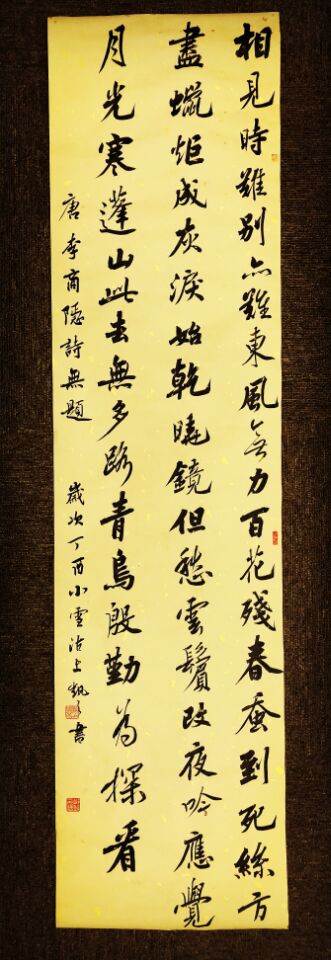 相見時難别亦難東風無力百花殘春蚕到死絲方
盡蠟炬成灰淚始乾曉鏡但愁雲鬢改夜吟應覺
月光寒蓬山此去無多路青鳥殷勤為探看
唐李商隱詩無題 歲次丁酉小雪沽上書